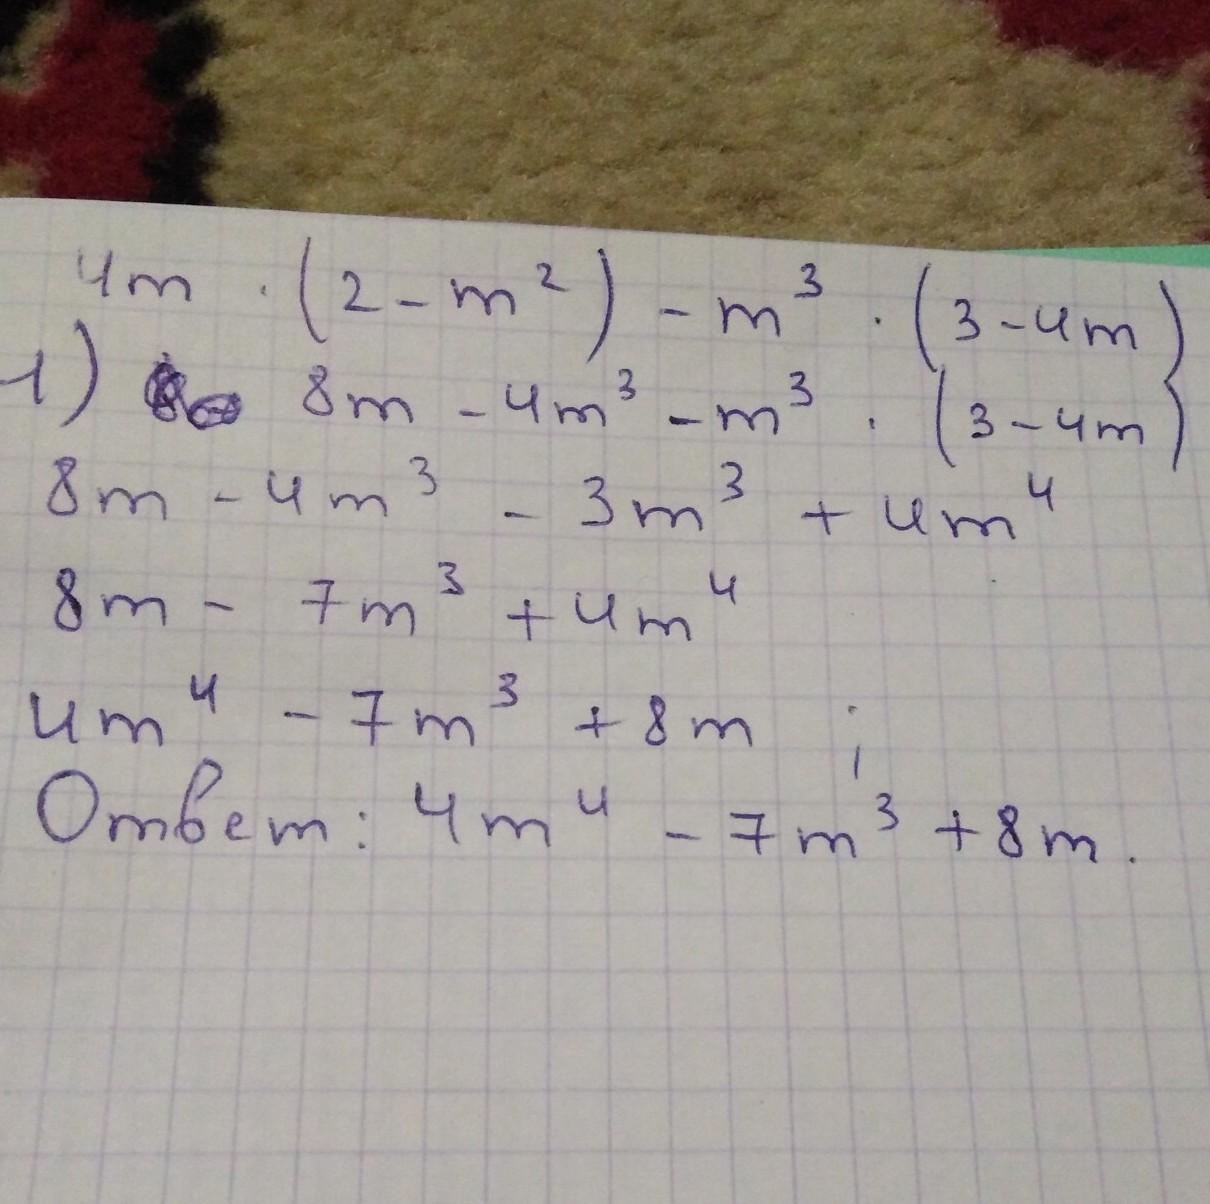 4m · (2 - m²) - m³ · (3 - 4m)
1) 8m - 4m³ - m³ · (3 - 4m)
8m - 4m³ - 3m³ + 4m⁴
8m - 7m³ + 4m⁴
4m⁴ - 7m³ + 8m ;
Ответ: 4m⁴ - 7m³ + 8m.